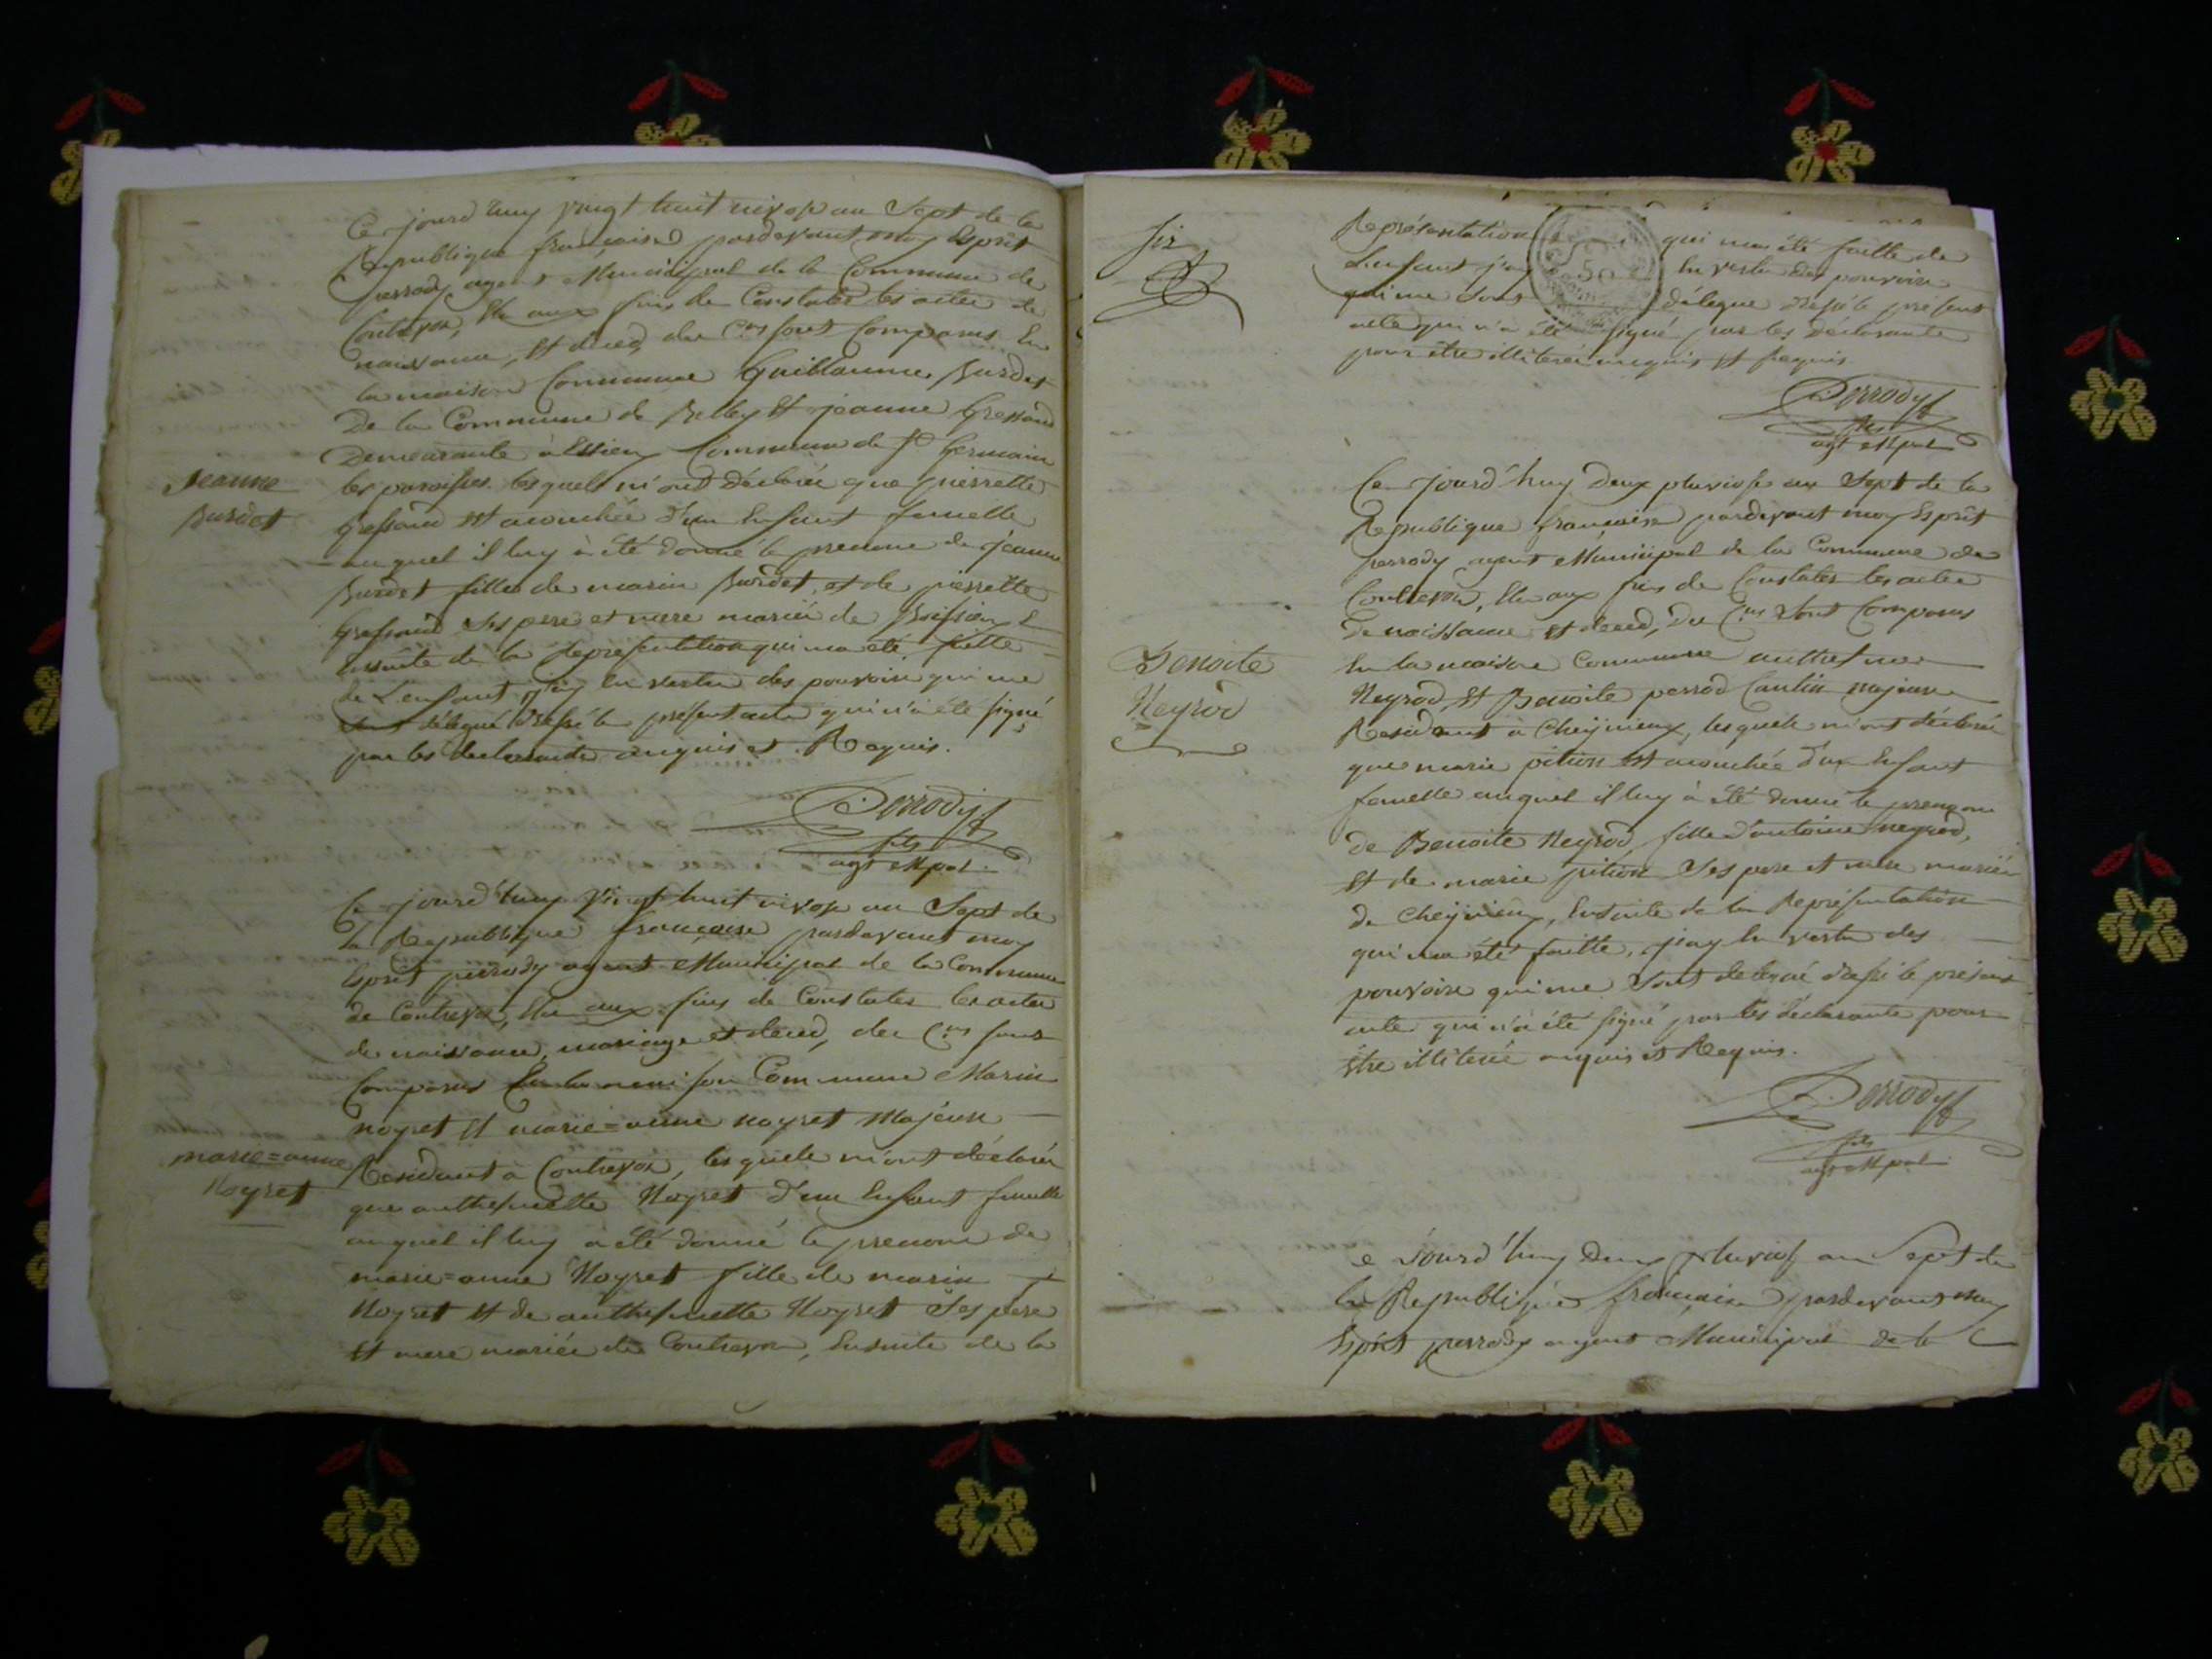 Ce jourd'huy vingt huit nivose an Sept de la
Republique française pardevant moy Esprit
perrody agent Municipal de la Commune de
Contrevoz, Elu aux fins de Constater les actes de
naissance, et deced, des C.ens sont Comparus En
la maison Commune Guillaume Burdet
De la Commune de Belley et jeanne Gressard
Demeurante à Essieu Commune de St Germain
Jeanne
Burdet
les paroisses. lesquels m'ont déclaré que pierrette
est acouchée d'un Enfant femelle
auquel il luy à été donné le prenome de jeanne
Burdet fille de marin Burdet, et de pierrette
ses pere et mere mariés de
Ensuite de la representation qui ma été faitte
de L'enfant j'ay En vertu des pouvoirs qui me
sont délégué dressé le présent acte qui n'a été signé
par les declarants enquis et Requis.
Perrody
fils
agt Mpal
Ce jourd'huy vingt huit nivose an Sept de
la Republique française pardevant moy
Esprit perrody agent Municipal de la Commune
de Contrevoz, Elu aux fins de Constater les actes
de naissance, mariage et deced, des C.ens sont
Comparus En la maison Commune Marin
noyret et marie=anne noyret Majeurs
marie=anne
Noyret
Residant à Contrevoz, lesquels m'ont déclaré
que anthelmette Noyret d'un Enfant femelle
auquel il luy à été donné le prenome de
marie=anne Noyret fille de marin
Noyret et de anthelmette Noyret Ses pere
et mere mariés de Contrevoz, Ensuite de la
Six
Représentation qui ma été faitte de
L'enfant j'ay En vertu des pouvoirs
qui me sont délégue dressé le présent
acte qui n'a été signé par les declarants
50
pour être illiteré enquis et Requis.
Perrody
fils
agt Mpal
Ce jourd'huy deux pluviose an Sept de la
Republique française pardevant moy Esprit
perrody agent Municipal de la Commune de
Contrevoz, Elu aux fins de Constater les actes
De naissance et deced, des C.ens Sont Comparus
Benoite
Neyrod
En la maison Commune anthelme
Neyrod, et Benoite perrod Cantin majeurs
Residant à Cheyinieux, lesquels m'ont déclaré
que marie pition est acouchée d'un Enfant
femelle auquel il luy à été donné le prenom
de Benoite Neyrod, fille d'antoine neyrod,
et de marie pition Ses pere et mere mariés
de Cheyinieux, Ensuite de la Représentation
qui ma été faitte, j'ay En vertu des
pouvoirs qui me Sont delegué dressé le présent
acte qui n'a été signé par les déclarants pour
être illiteré enquis et Requis.
Perrody
fils
agt Mpal
Ce Jourd'huy Deux pluviose an Sept de
la Republique française pardevant moy
Esprit perrody agent Municipal de la